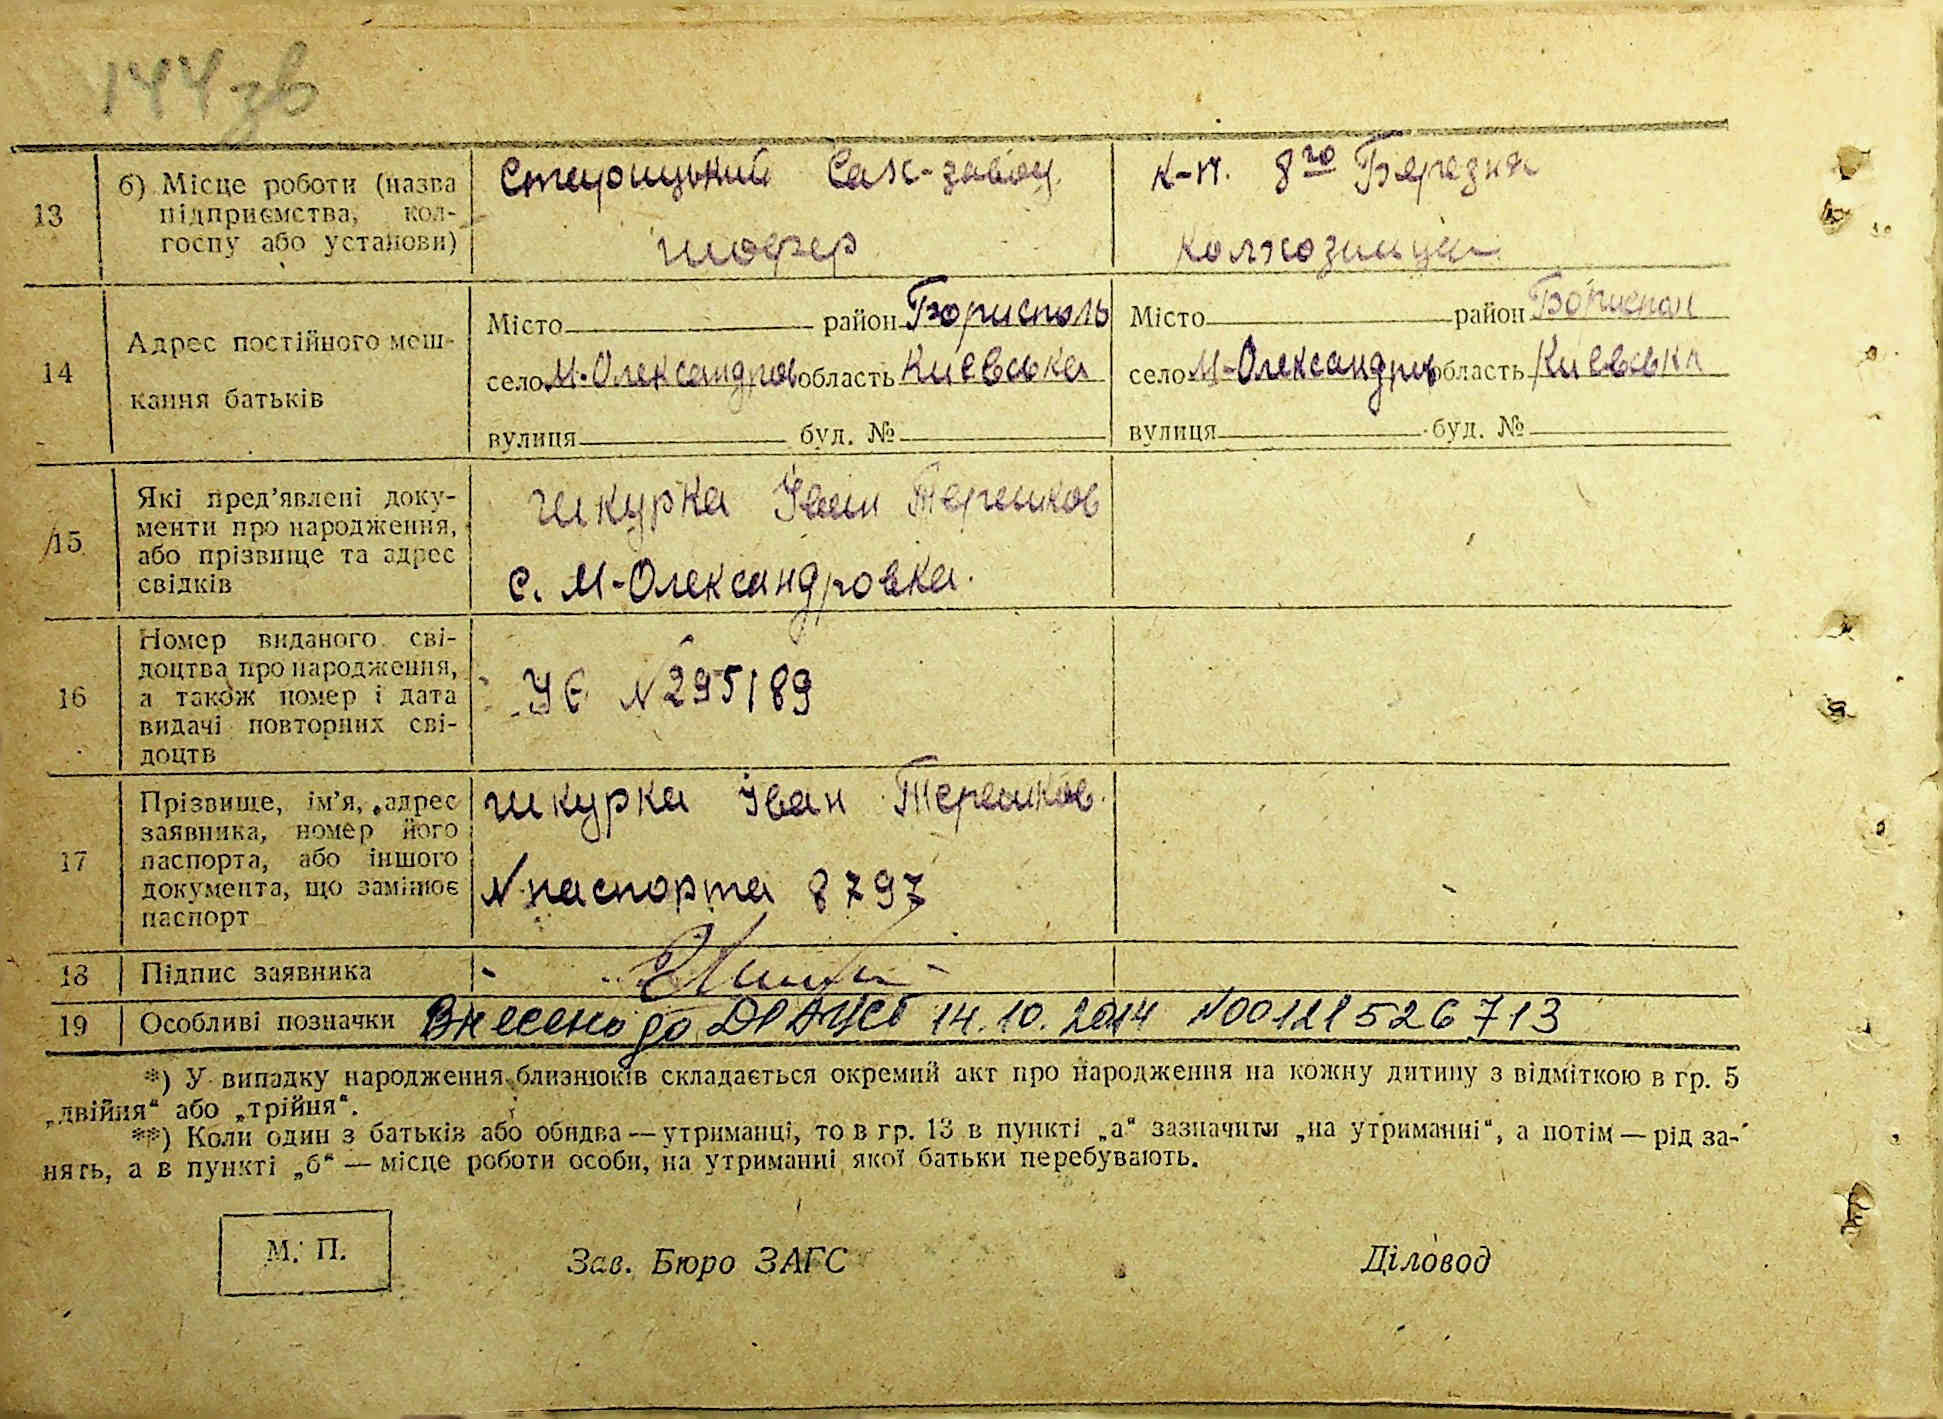 144зв
13
б) Місце роботи (назва
підприємства, кол-
госпу або установи)
Старицький Сах-завод
шофер
К-п. 8го Березня
колхозниця
14
Адрес постійного меш-
кання батьків
Місто район Бориспољ
село М-Олександров область Киевська
вулиця буд. №
Місто район Бориспол
село М-Олександров область Киевська
вулиця буд. №
15
Які пред’явлені доку-
менти про народження,
або прізвище та адрес
свідків
Шкурка Іван Терешков
с. М-Олександровка.
16
Номер виданого сві-
доцтва про народження,
а також номер і дата
видачі повторних сві-
доцтв
УЄ N 295189
17
Прізвище, ім’я, адрес
заявника, номер його
паспорта, або іншого
документа, що замінює
паспорт
Шкурка Іван Терешков.
N паспорта 8797
18
Підпис заявника
19
Особливі позначки
Внесено до ДРАЦСГ 14.10.2014 N00121526713
*) У випадку народження близнюків складається окремий акт про народження на кожну дитину з відміткою в гр. 5
„двійня“ або „трійня“.
**) Коли один з батьків або обидва — утриманці, то в гр. 13 в пункті „а“ зазначити „на утриманні“, а потім — рід за-
нять, а в пункті „б“ — місце роботи особи, на утриманні якої батьки перебувають.
М. П.
Зав. Бюро ЗАГС
Діловод